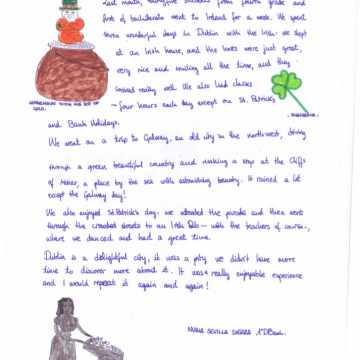 Last month, twenty-five students from fourth grade and
first of bachillerato went to Ireland for a week. We spent
seven wonderful days in Dublin with the Irish: we slept
at an Irish house, and the hosts were just great,
very nice and smiling all the time, and they
cooked really well. We also had classes
— four hours each day except on St. Patrick's
and Bank Holidays.
LEPRECHAUN WITH HIS POT OF
GOLD.
SHAMROCK
We went on a trip to Galway, an old city in the north-west, driving
through a green beautiful country and making a stop at the Cliffs
of Moher, a place by the sea with astonishing beauty. It rained a lot
except the Galway day!
We also enjoyed St.Patrick's day: we attended the parade and then went
through the crowded streets to an Irish Pub — with the teachers of course—,
where we danced and had a great time.
Dublin is a delightful city, it was a pity we didn't have more
time to discover more about it. It was a really enjoyable experience
and I would repeat it again and again!
MARÍA SEVILLA SIERRA 1ºDBach.